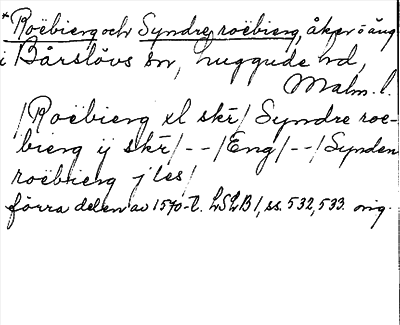 *Roëbierg och Syndre roëbierg, åker o äng
i Bårslövs sn, Luggude hd,
Malm. l.
/Roëbierg xl skr/ Syndre roe-
bierg ij skr/--/Eng/--/Synden
roëbierg j les/
förra delen av 1570-t. LSLB 1, ss. 532, 533. orig.